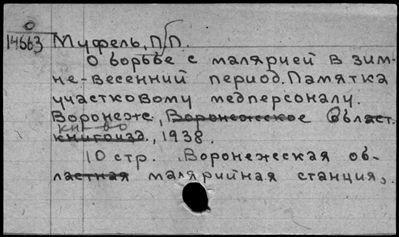 14663 Муфель, П.П.
О борьбе с малярией в зим-
не-весенний период. Памятка
участковому медперсоналу.
Воронеж, Воронежское област.
кн-во
книгоизд., 1938.
10 стр. Воронежская об-
ластная малярийная станция.